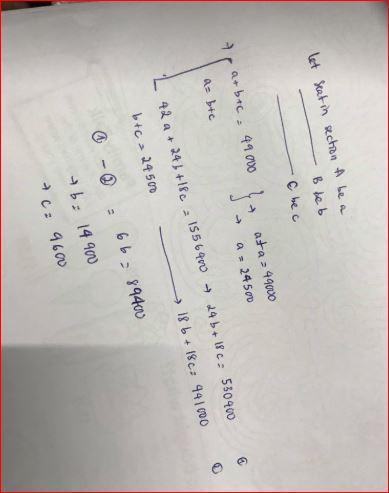 Let seat in section A be a
B be b
C be c
→ a+b+c = 49000 } → a+a = 49000
a = b+c → a = 24500
42a + 24b + 18c = 1556900 → 24b + 18c = 530900 ①
b+c = 24500 → 18b + 18c = 441000 ②
① - ② = 6b = 89400
→ b = 14900
→ c = 9600